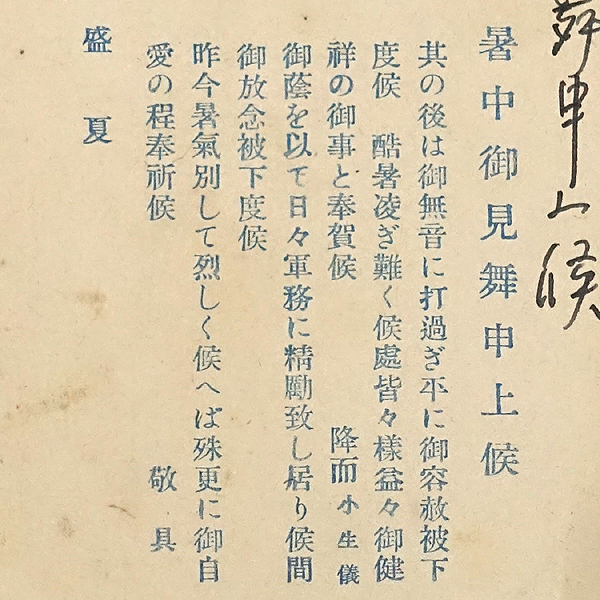 舞申上候
暑中御見舞申上候
其の後は御無音に打過ぎ平に御容赦被下
度候　酷暑凌ぎ難く候處皆々樣益々御健
祥の御事と奉賀候　降而小生儀
御蔭を以て日々軍務に精勵致し居り候間
御放念被下度候
昨今暑氣別して烈しく候へば殊更に御自
愛の程奉祈候　敬具
盛夏